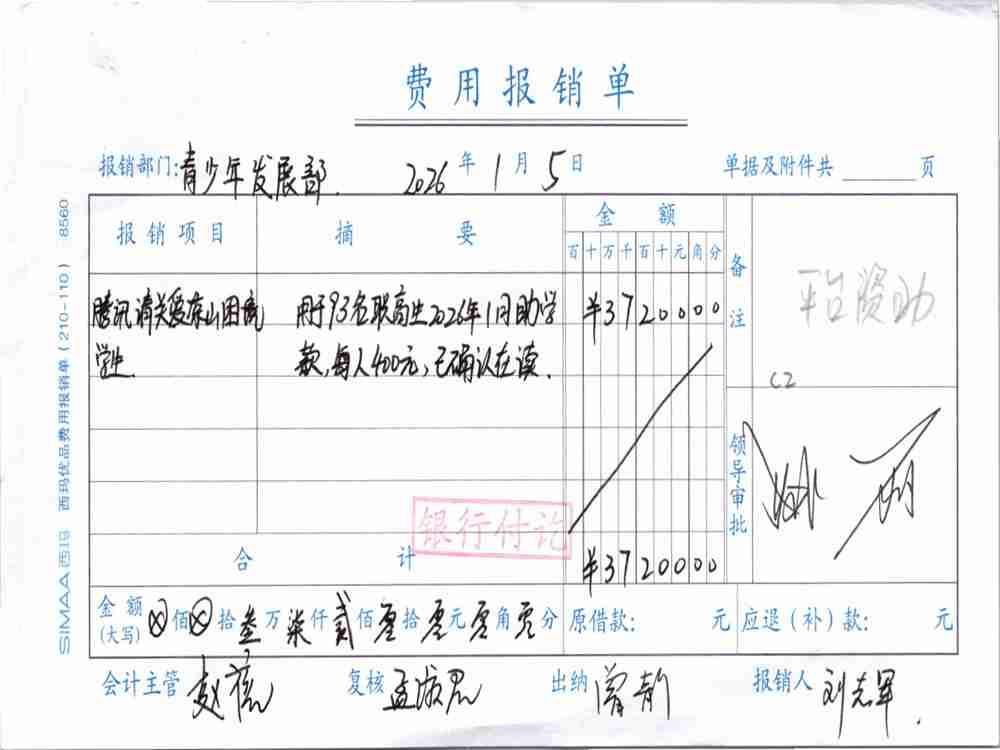 费用报销单
报销部门:青少年发展部. 2026年1月5日 单据及附件共 页
报销项目 摘要 金额 备注
百十万千百十元角分
腾讯清关爱凉山困境 用于93名职高生2026年1月助学 ¥3720000
学生. 款,每人400元,已确认在读.
平台资助
C2
领导审批
银行付讫
合计 ¥3720000
金额(大写) ⊗佰⊗拾叁万柒仟贰佰零拾零元零角零分 原借款: 元 应退(补)款: 元
会计主管 赵 复核 孟淑君 出纳 曾莉 报销人 刘志军.
SIMAA 西玛 西玛优品费用报销单(210-110) 8560